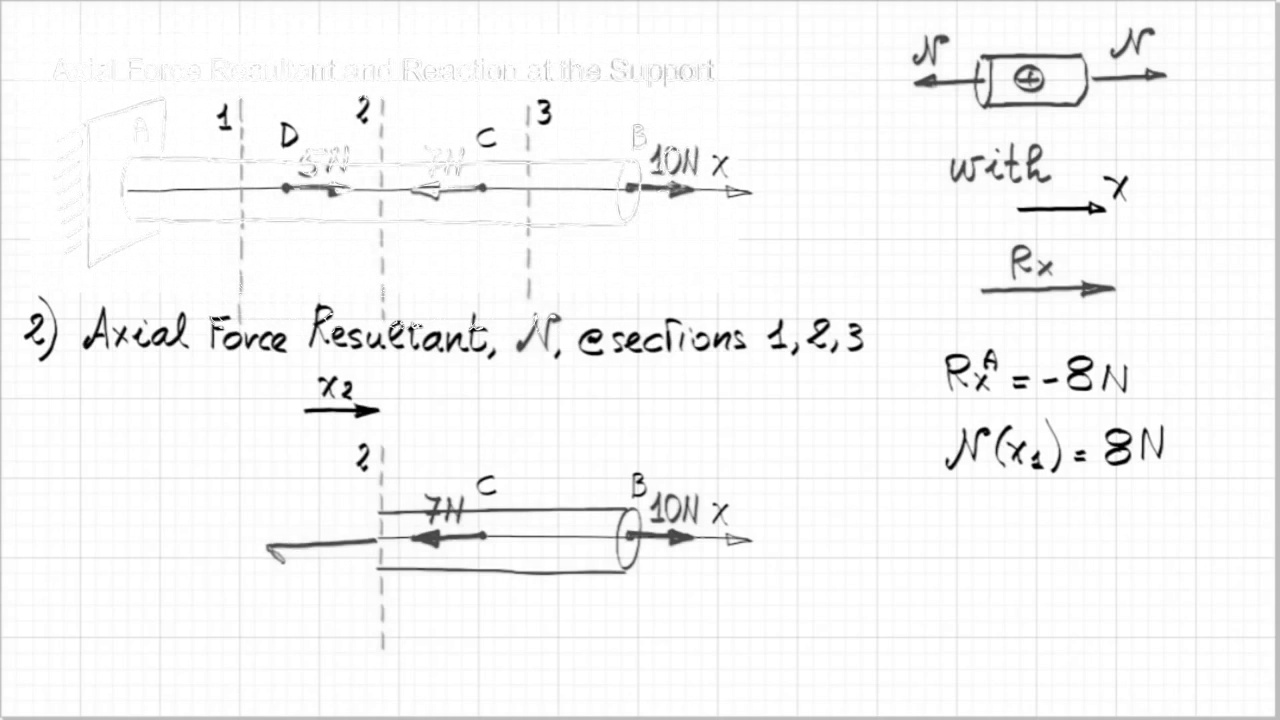 Axial Force Resultant and Reaction at the Support
1 2 3
A D 5N 7N C B 10N x
2) Axial Force Resultant, N, @sections 1, 2, 3
x2
2
7N C B 10N x
N ⊕ N
with
x
Rx
RxA = -8N
N(x1) = 8N